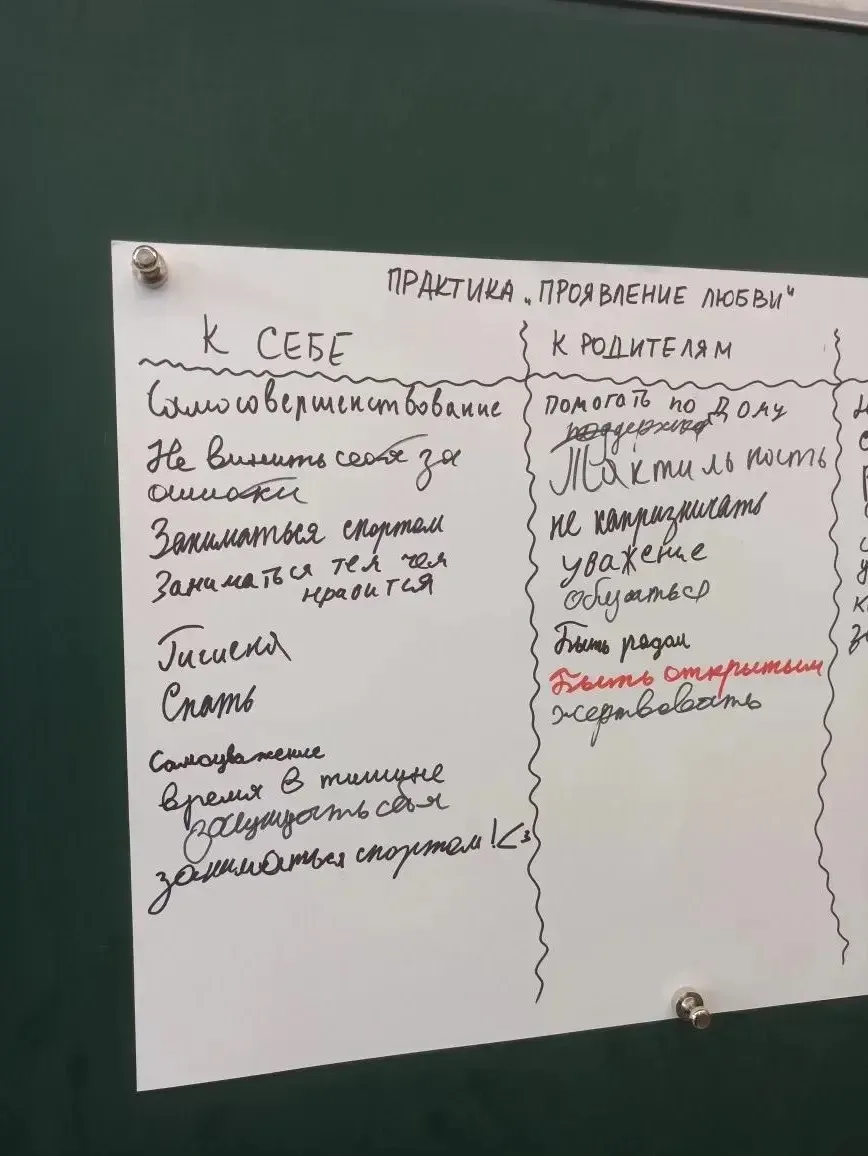 ПРАКТИКА „ПРОЯВЛЕНИЕ ЛЮБВИ"
К СЕБЕ
Самосовершенствование
Не винить себя за
ошибки
Заниматься спортом
Заниматься тем чем
нравится
Гигиена
Спать
Самоуважение
время в тишине
защищать себя
заниматься спортом! <3
К РОДИТЕЛЯМ
помогать по дому
поддержка
Тактильность
не капризничать
уважение
общаться
Быть рядом
Быть открытым
жертвовать